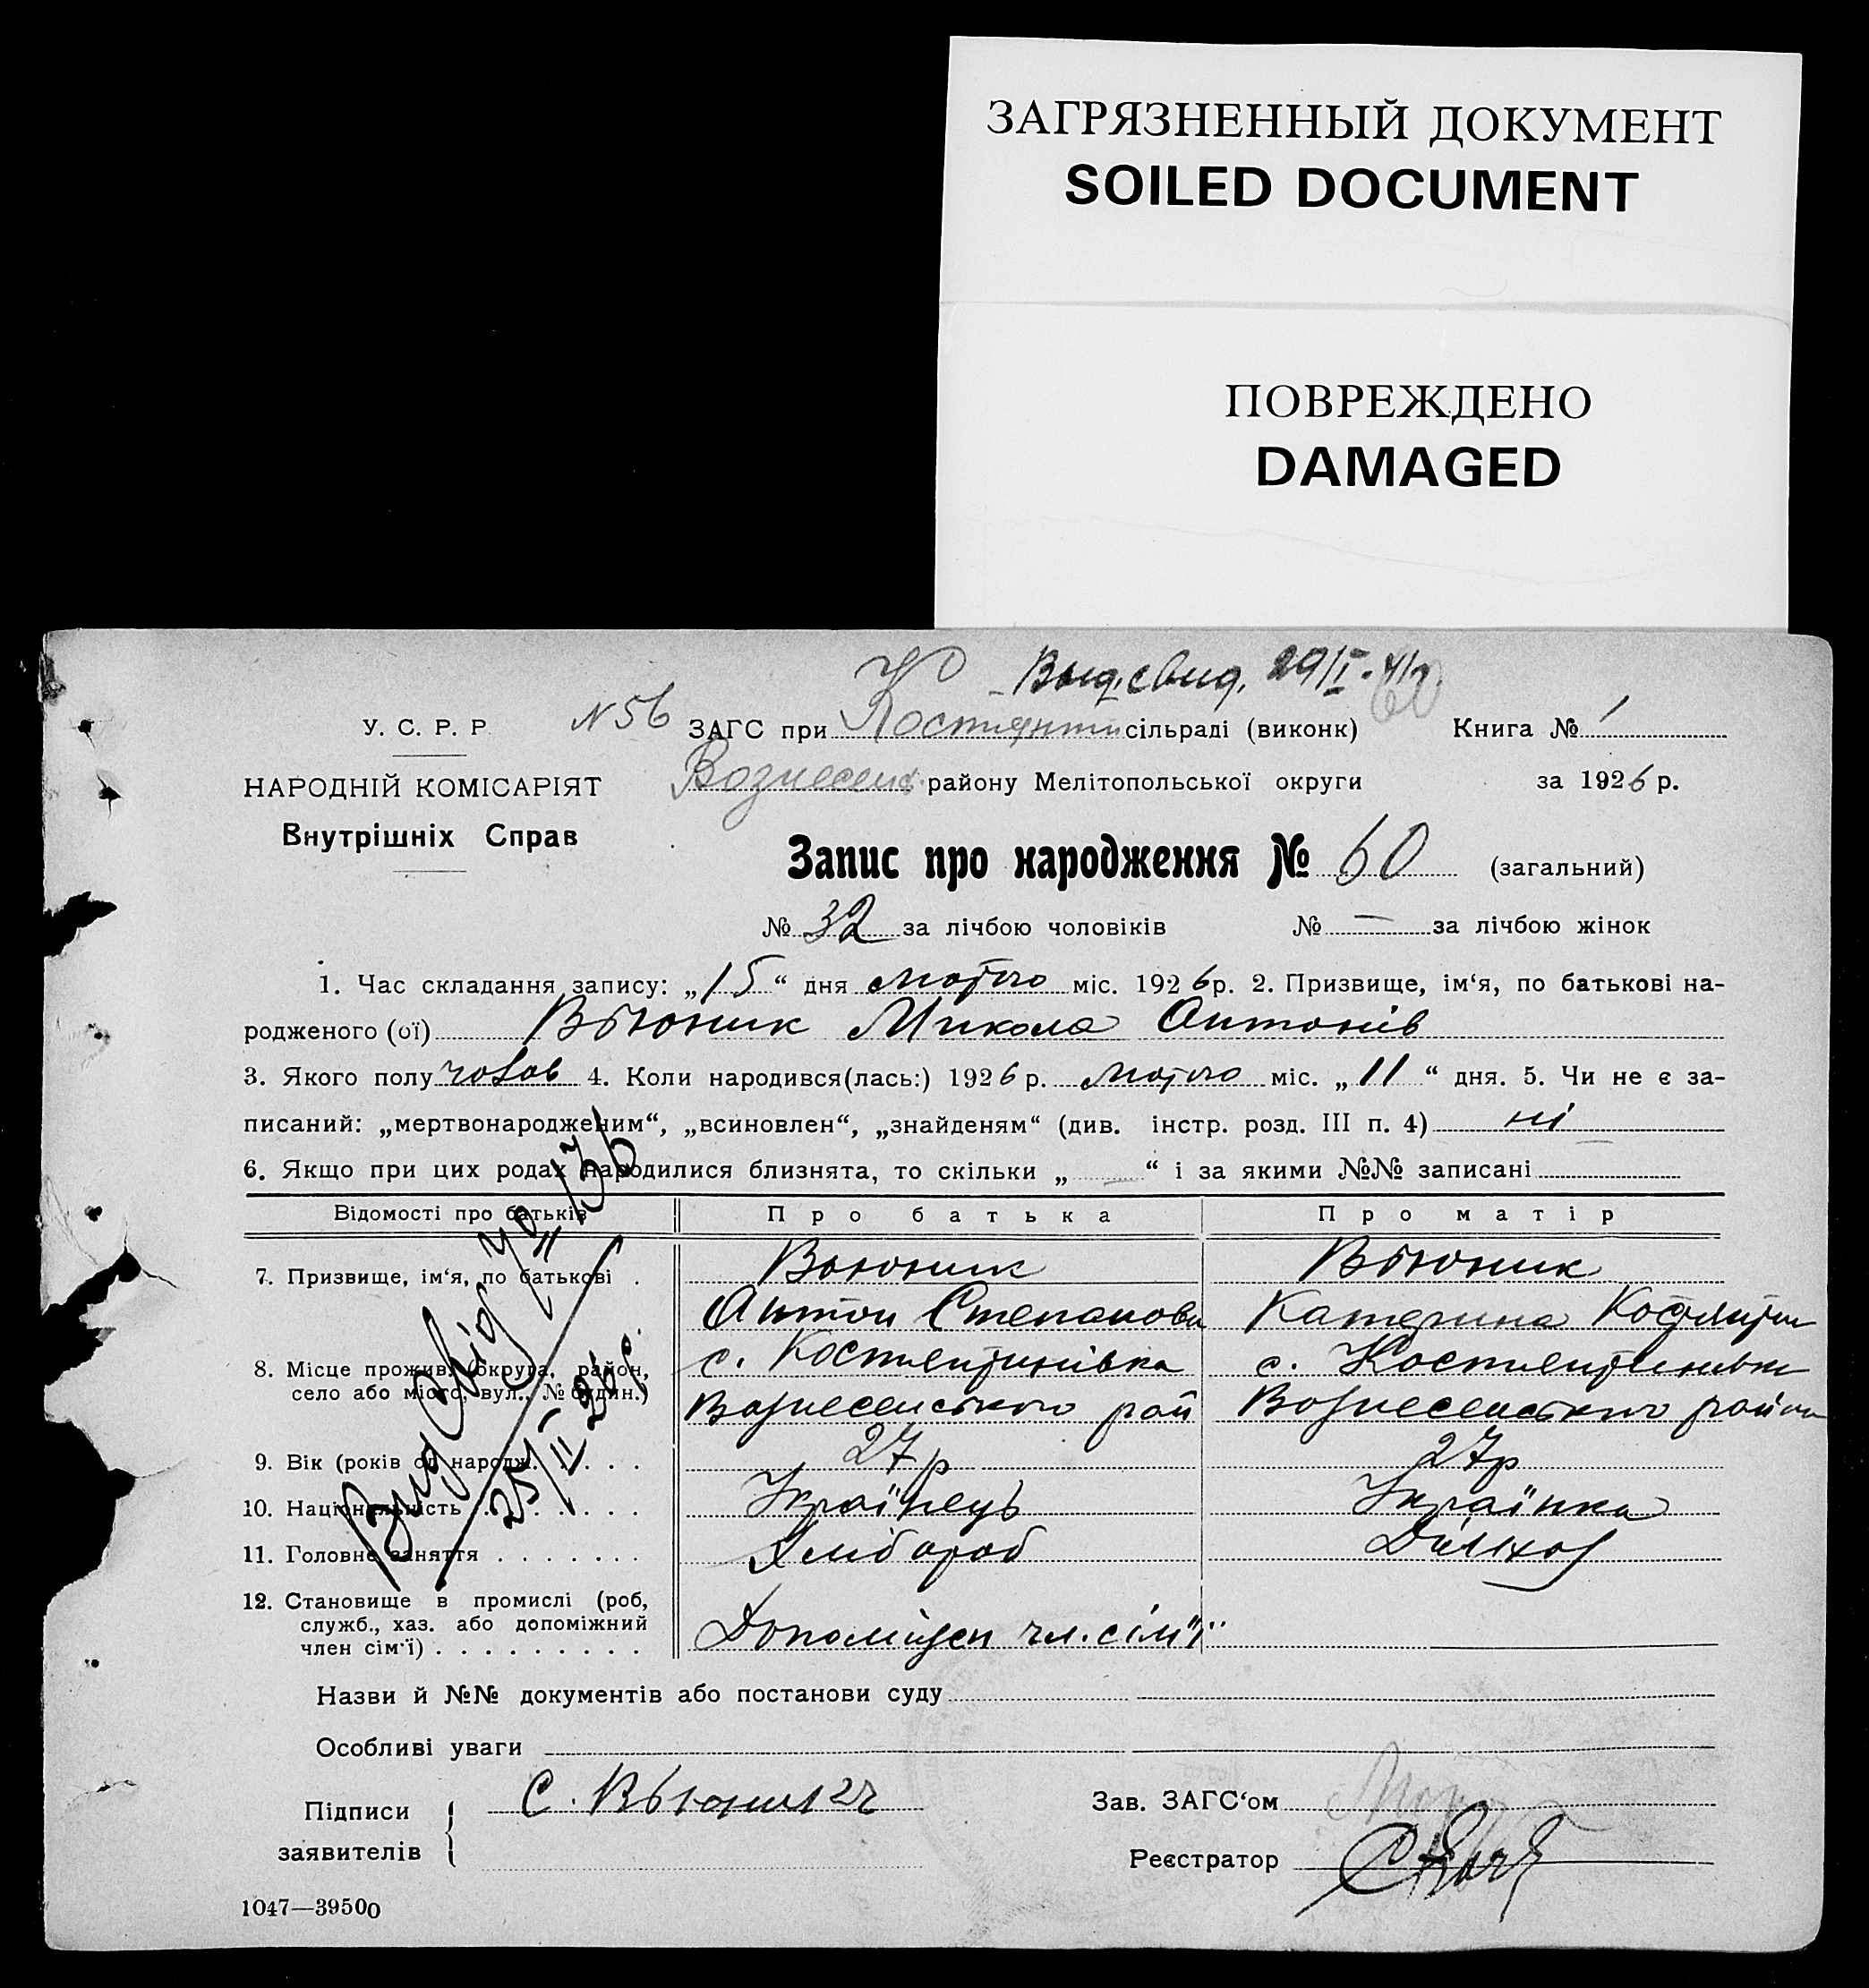 ЗАГРЯЗНЕННЫЙ ДОКУМЕНТ
SOILED DOCUMENT
ПОВРЕЖДЕНО
DAMAGED
Выд. свид. 29/I
N 56
У. С. Р. Р
ЗАГС при Костянтин сільраді (виконк) Книга № 1
НАРОДНІЙ КОМІСАРІЯТ
Внутрішніх Справ
Вознесенс. району Мелітопольської округи за 1926 р.
Запис про народження № 60 (загальний)
№ 32 за лічбою чоловіків № — за лічбою жінок
1. Час складання запису: „15“ дня лютого міс. 1926 р. 2. Призвище, ім‘я, по батькові на-
родженого (ої) Вьюник Микола Антонів
3. Якого полу чолов 4. Коли народився(лась:) 1926 р. лютого міс. „11“ дня. 5. Чи не є за-
писаний: „мертвонародженим“, „всиновлен“, „знайденям“ (див. інстр. розд. III п. 4) ні
6. Якщо при цих родах народилися близнята, то скільки „ — “ і за якими №№ записані
Відомості про батьків Про батька Про матір
7. Призвище, ім‘я, по батькові . Вьюник Вьюник
Антон Степанови Катерина
8. Місце прожив. (округа, район,
село або місто, вул., № будин.)
с. Костянтинівка с. Костянтинівки
Вознесенського рай Вознесенського району
9. Вік (років од народж. . . . . 27 р 27 р
10. Національність . . . . . . . Українець Українка
11. Головне заняття . . . . . . . Хлібороб
12. Становище в промислі (роб,
служб., хаз. або допоміжний
член сім‘ї) . . . . . . . . .
чл. сім'ї
25/II 26 р.
Назви й №№ документів або постанови суду
Особливі уваги
Підписи
заявителів
С.
Зав. ЗАГС‘ом
Реєстратор
1047—39500